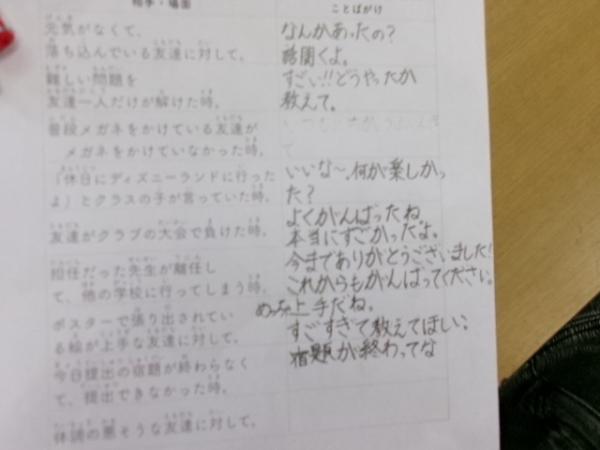 相手・場面
ことばがけ
元気がなくて、
落ち込んでいる友達に対して。
なんかあったの?
話聞くよ。
難しい問題を
友達一人だけが解けた時。
すごい!!どうやったか
教えて。
普段メガネをかけている友達が
メガネをかけていなかった時。
「休日にディズニーランドに行った
よ」とクラスの子が言っていた時。
いいな〜、何が楽しかっ
た?
友達がクラブの大会で負けた時。
よくがんばったね。
本当にすごかったよ。
担任だった先生が離任し
て、他の学校に行ってしまう時。
今までありがとうございました!
これからもがんばってください。
ポスターで張り出されてい
る絵が上手な友達に対して。
めっちゃ上手だね。
すごすぎて教えてほしい。
今日提出の宿題が終わらなく
て、提出できなかった時。
宿題が終わってな
体調の悪そうな友達に対して。